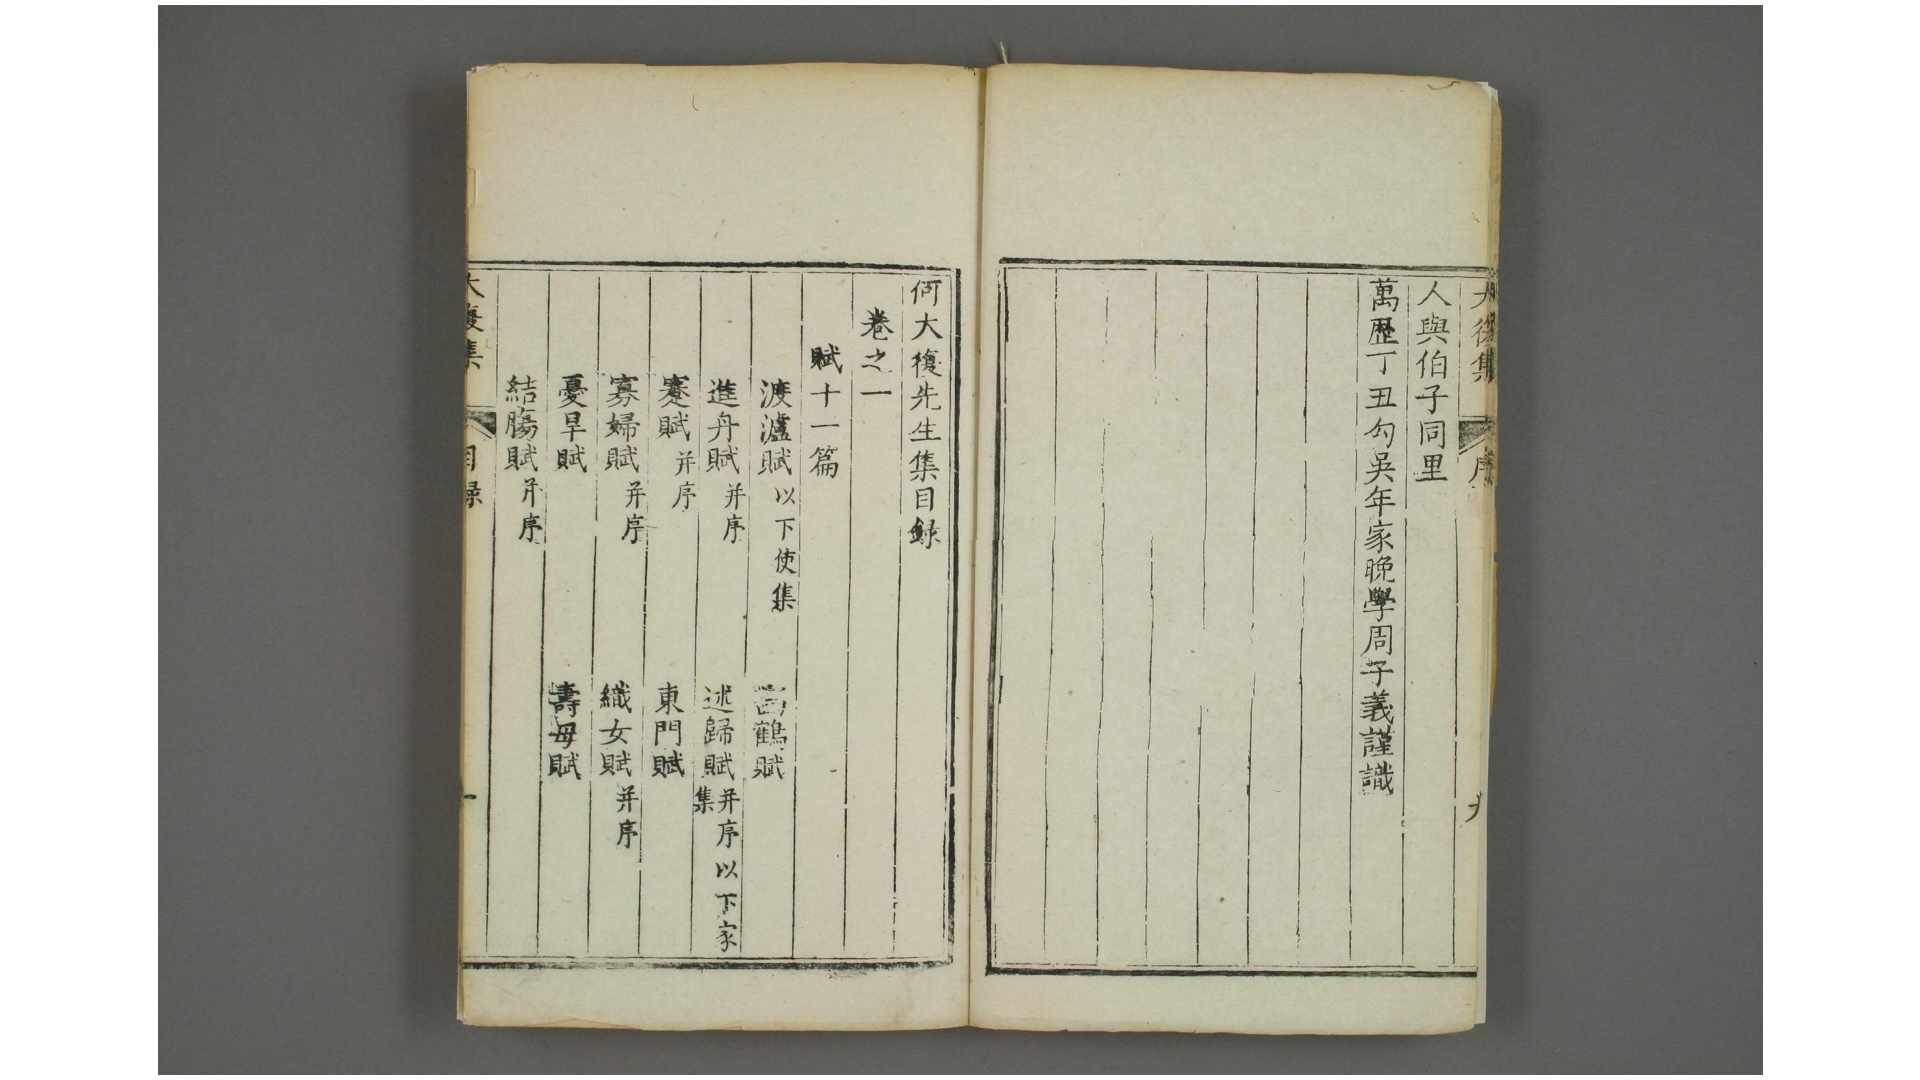 大復集
序
九
人與伯子同里
萬歷丁丑勾吳年家晚學周子義謹識
何大復先生集目錄
卷之一
賦十一篇
渡瀘賦以下使集
畫鶴賦
進舟賦并序
述歸賦并序以下家集
蹇賦并序
東門賦
寡婦賦并序
織女賦并序
憂旱賦
壽母賦
結腸賦并序
大復集
目錄
一